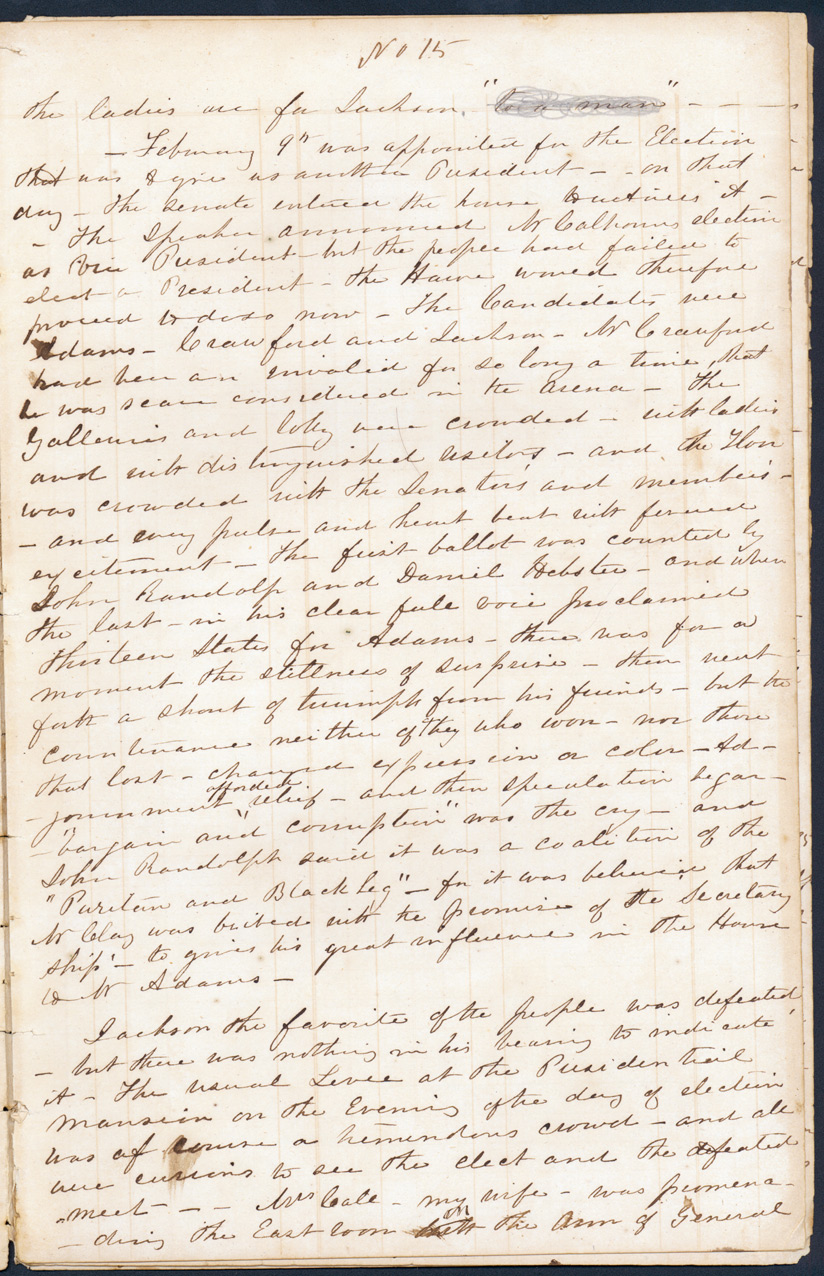 No 15
the ladies are for Jackson, "to a man" - - -
- February 9th was appointed for the Election
that was to give us another President - - on that
day - the Senate entered the house to witness it -
- The Speaker announced Mr Calhouns election
as Vice President - but the people had failed to
elect a President - the House would therefore
proceed to do so now - The Candidates were
Adams - Crawford and Jackson - Mr Crawford
had been an invalid for so long a time, that
he was scarce considered in the arena - The
Galleries and lobby were crowded - with ladies
and with distinguished visitors - and the Floor
was crowded with the Senators and members -
- and every pulse and heart beat with fevered
excitement - The first ballot was counted by
John Randolp and Daniel Webster - and when
the last - in his clear full voice proclaimed
Thirteen States for Adams - there was for a
moment the stillness of surprise - then went
forth a shout of triumph from his friends - but the
countenance neither of they who won - nor those
that lost - changed expression or color - Ad-
-journment afforded relief - and then speculation began -
- "bargain and corruption" was the cry - and
John Randolph said it was a coalition of the
"Puritan and Black Leg" - for it was believed that
Mr Clay was bribed with the promise of the Secretary
ship - to give his great influence in the House
to Mr Adams -
Jackson the favorite of the people was defeated
- but there was nothing in his bearing to indicate
it - The usual Levee at the Presidential
mansion on the Evening of the day of election
was of course a tremendous crowd - and all
were curious to see the elect and the defeated
meet - - Mrs Call - my wife - was promena-
-ding the East room on the Arm of General